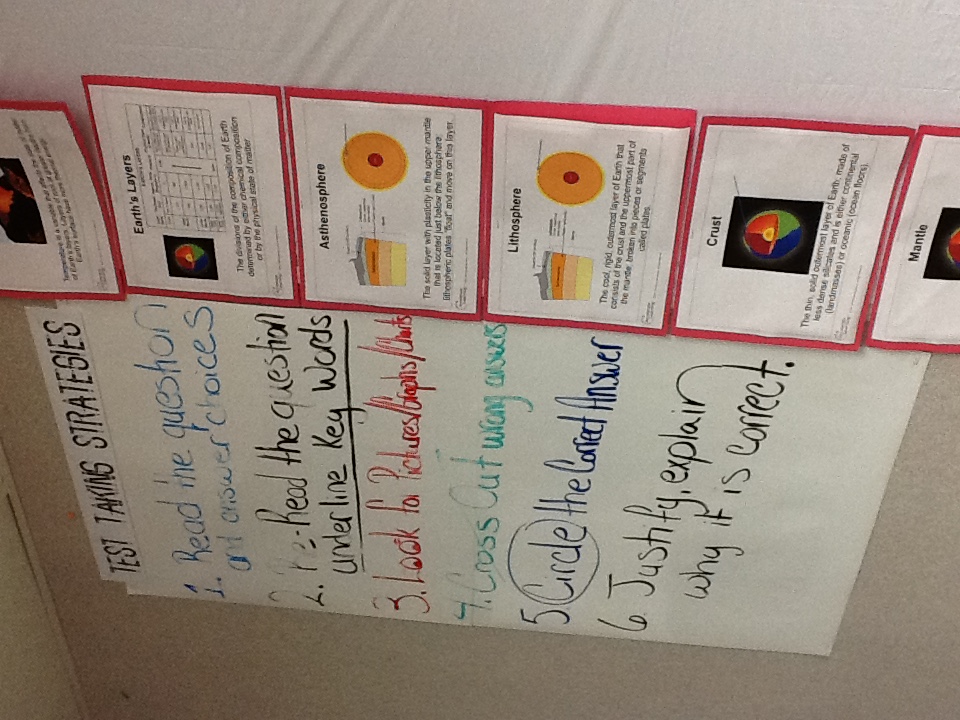 TEST TAKING STRATEGIES
1. Read the question
and answer choices
2. Re-Read the question
underline Key Words
3. Look for Pictures/Graphs/Charts
4. Cross Out wrong answers
5 Circle the Correct Answer
6 Justify, explain
why it is correct.
Earth's Layers
The divisions of the composition of Earth
determined by either chemical composition
or by the physical state of matter
Asthenosphere
The solid layer with plasticity in the upper mantle
that is located just below the lithosphere;
lithospheric plates "float" and move on this layer.
Lithosphere
The cool, rigid outermost layer of Earth that
consists of the crust and the uppermost part of
the mantle; broken into pieces or segments
called plates.
Crust
The thin, solid outermost layer of Earth, made of
less dense silicates and is either continental
(landmasses) or oceanic (ocean floors).
Mantle